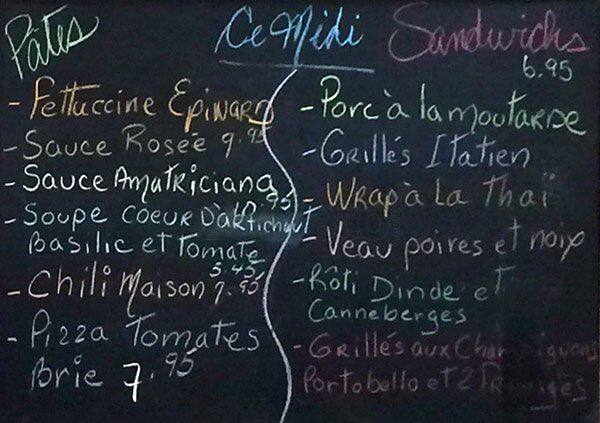 Pâtes
Ce Midi
Sandwichs
6.95
- Fettuccine Epinard
- Sauce Rosée 9.95
- Sauce Amatriciana
10.95
- Soupe Coeur D'artichaut
Basilic et Tomate
5.45
- Chili Maison 7.95
- Pizza Tomates
Brie 7.95
- Porc à la moutarde
- Grillés Italien
- Wrap à La Thaï
- Veau poires et noix
- Rôti Dinde et
Canneberges
- Grillés aux Champignons
Portobello et 2 Fromages